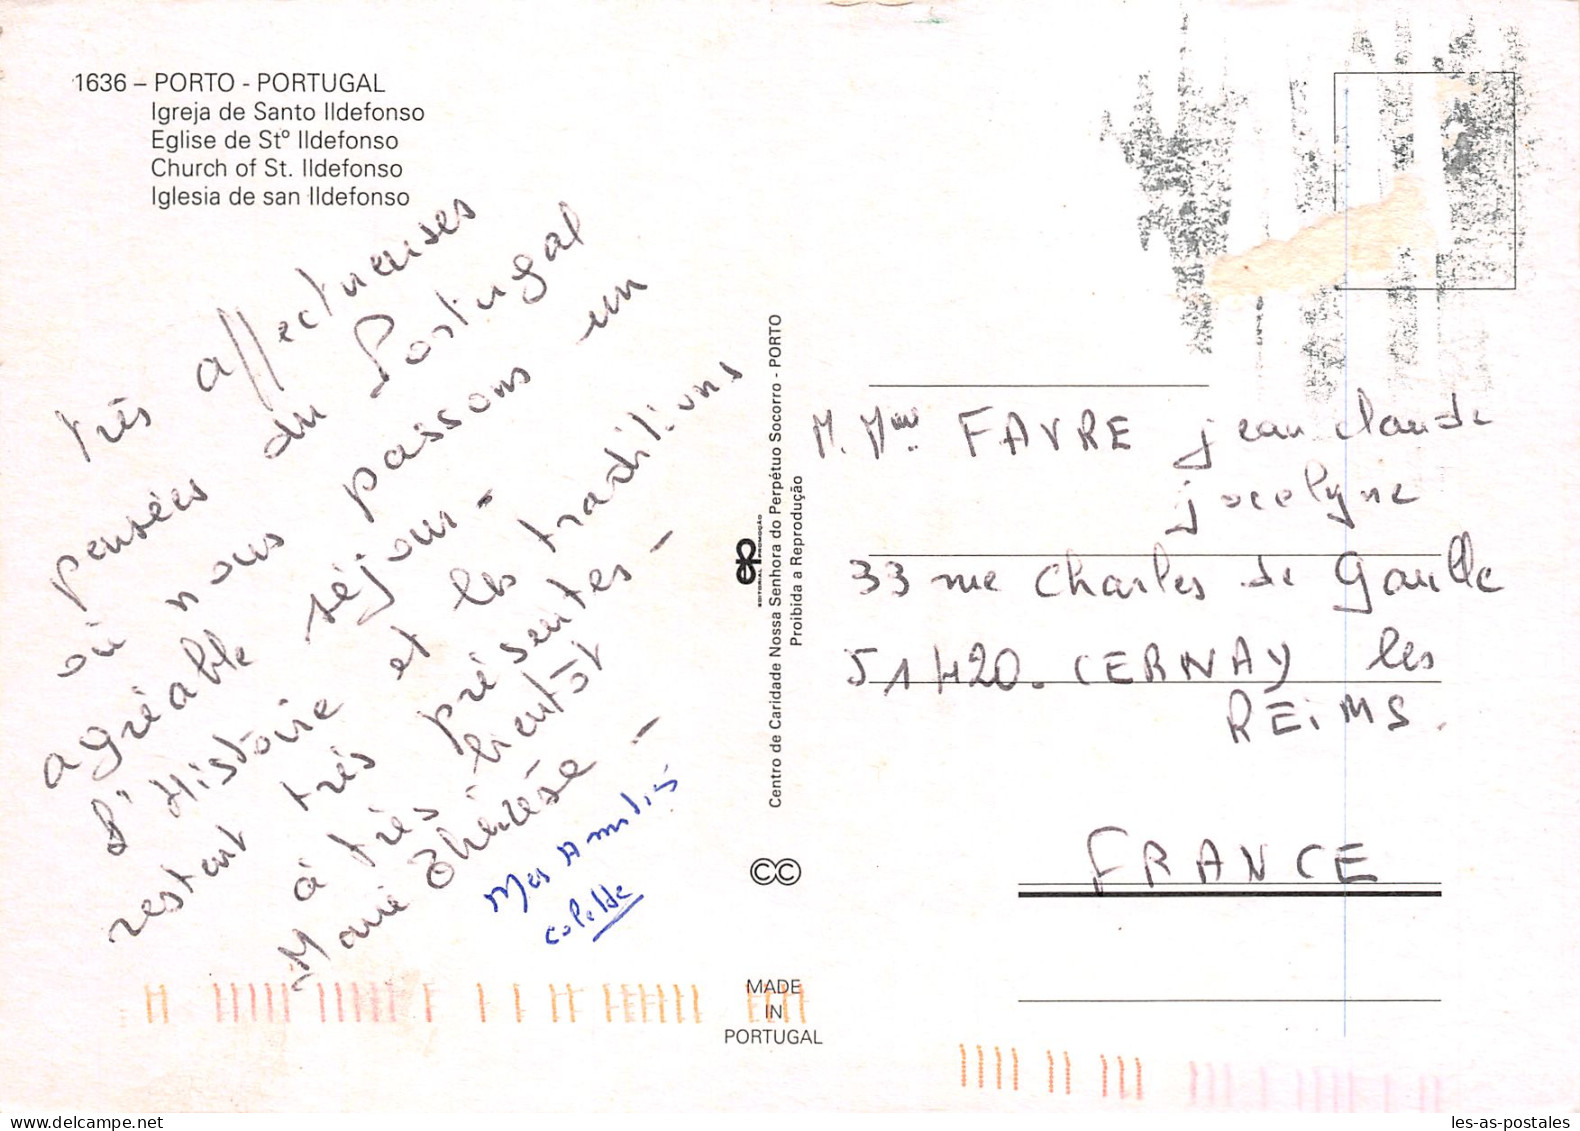 1636 – PORTO - PORTUGAL
Igreja de Santo Ildefonso
Eglise de Stº Ildefonso
Church of St. Ildefonso
Iglesia de san Ildefonso
très affectueuses
pensées du Portugal
où nous passons un
agréable séjour -
l'Histoire et les traditions
restent très présentes -
à très bientôt
Marie Thérèse -
Mes Amitiés
Colette
Centro de Caridade Nossa Senhora do Perpétuo Socorro - PORTO
Proibida a Reprodução
EDITORIAL PROMOÇÃO
CC
MADE
IN
PORTUGAL
M. Mme FAVRE jean claude
jocelyne
33 rue Charles de Gaulle
51420. CERNAY les
REiMS.
FRANCE
les-as-postales